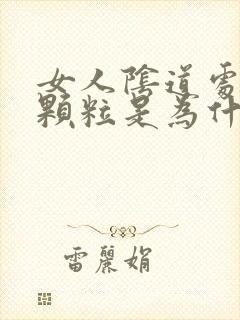 女人陰道處
顆粒是為什
雷麗娟